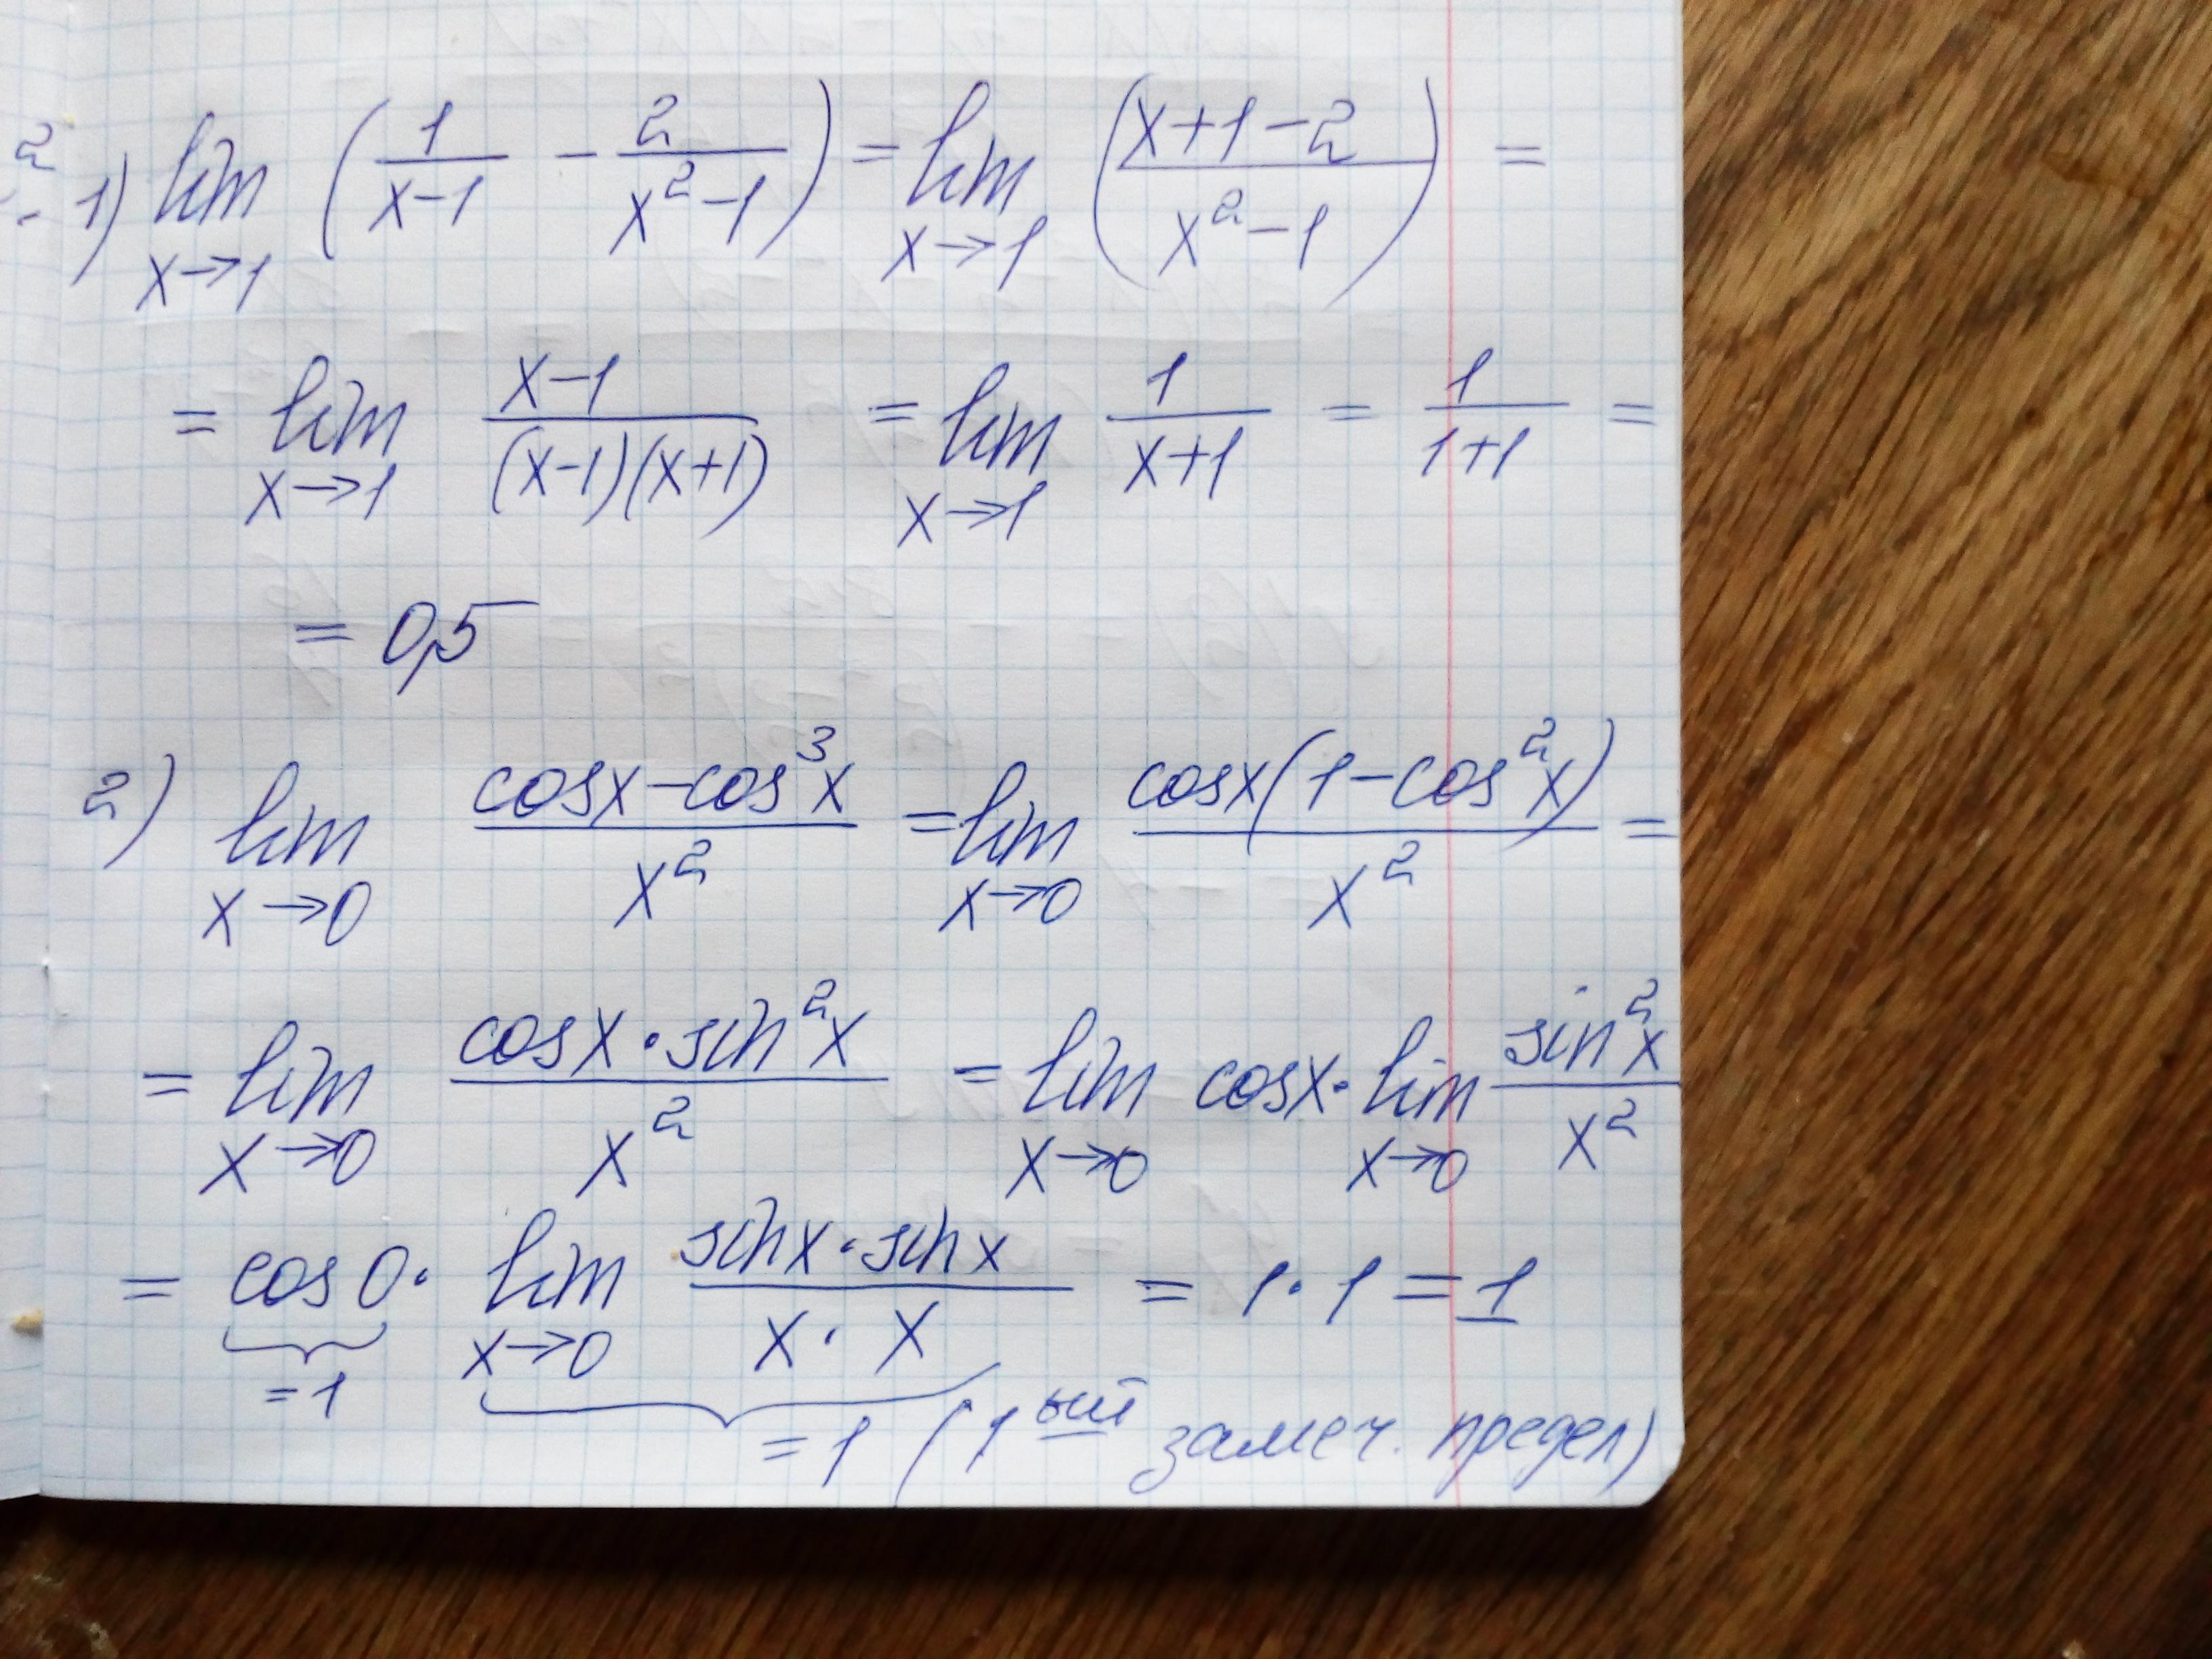 1) lim x→1 (1/(x-1) - 2/(x²-1)) = lim x→1 ((x+1-2)/(x²-1)) =
= lim x→1 (x-1)/((x-1)(x+1)) = lim x→1 1/(x+1) = 1/(1+1) =
= 0,5
2) lim x→0 (cosx-cos³x)/x² = lim x→0 (cosx(1-cos²x))/x² =
= lim x→0 (cosx·sin²x)/x² = lim x→0 cosx·lim x→0 sin²x/x²
= cos0· lim x→0 (sinx·sinx)/(x·x) = 1·1 = 1
=1 =1 (1ый замеч. предел)